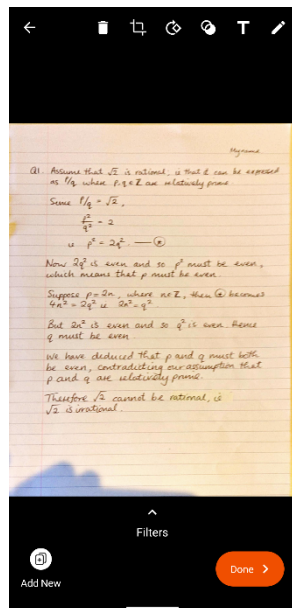 T
My name
Q1. Assume that √2 is rational, ie that it can be expressed
as P/q where p, q ∈ Z are relatively prime.
Since P/q = √2,
p²/q² = 2
ie p² = 2q². — ⊛
Now 2q² is even and so p² must be even,
which means that p must be even.
Suppose p = 2n, where n ∈ Z, then ⊛ becomes
4n² = 2q² ie 2n² = q²
But 2n² is even and so q² is even. Hence
q must be even
We have deduced that p and q must both
be even, contradicting our assumption that
p and q are relatively prime.
Therefore √2 cannot be rational, ie
√2 is irrational.
Filters
Add New
Done